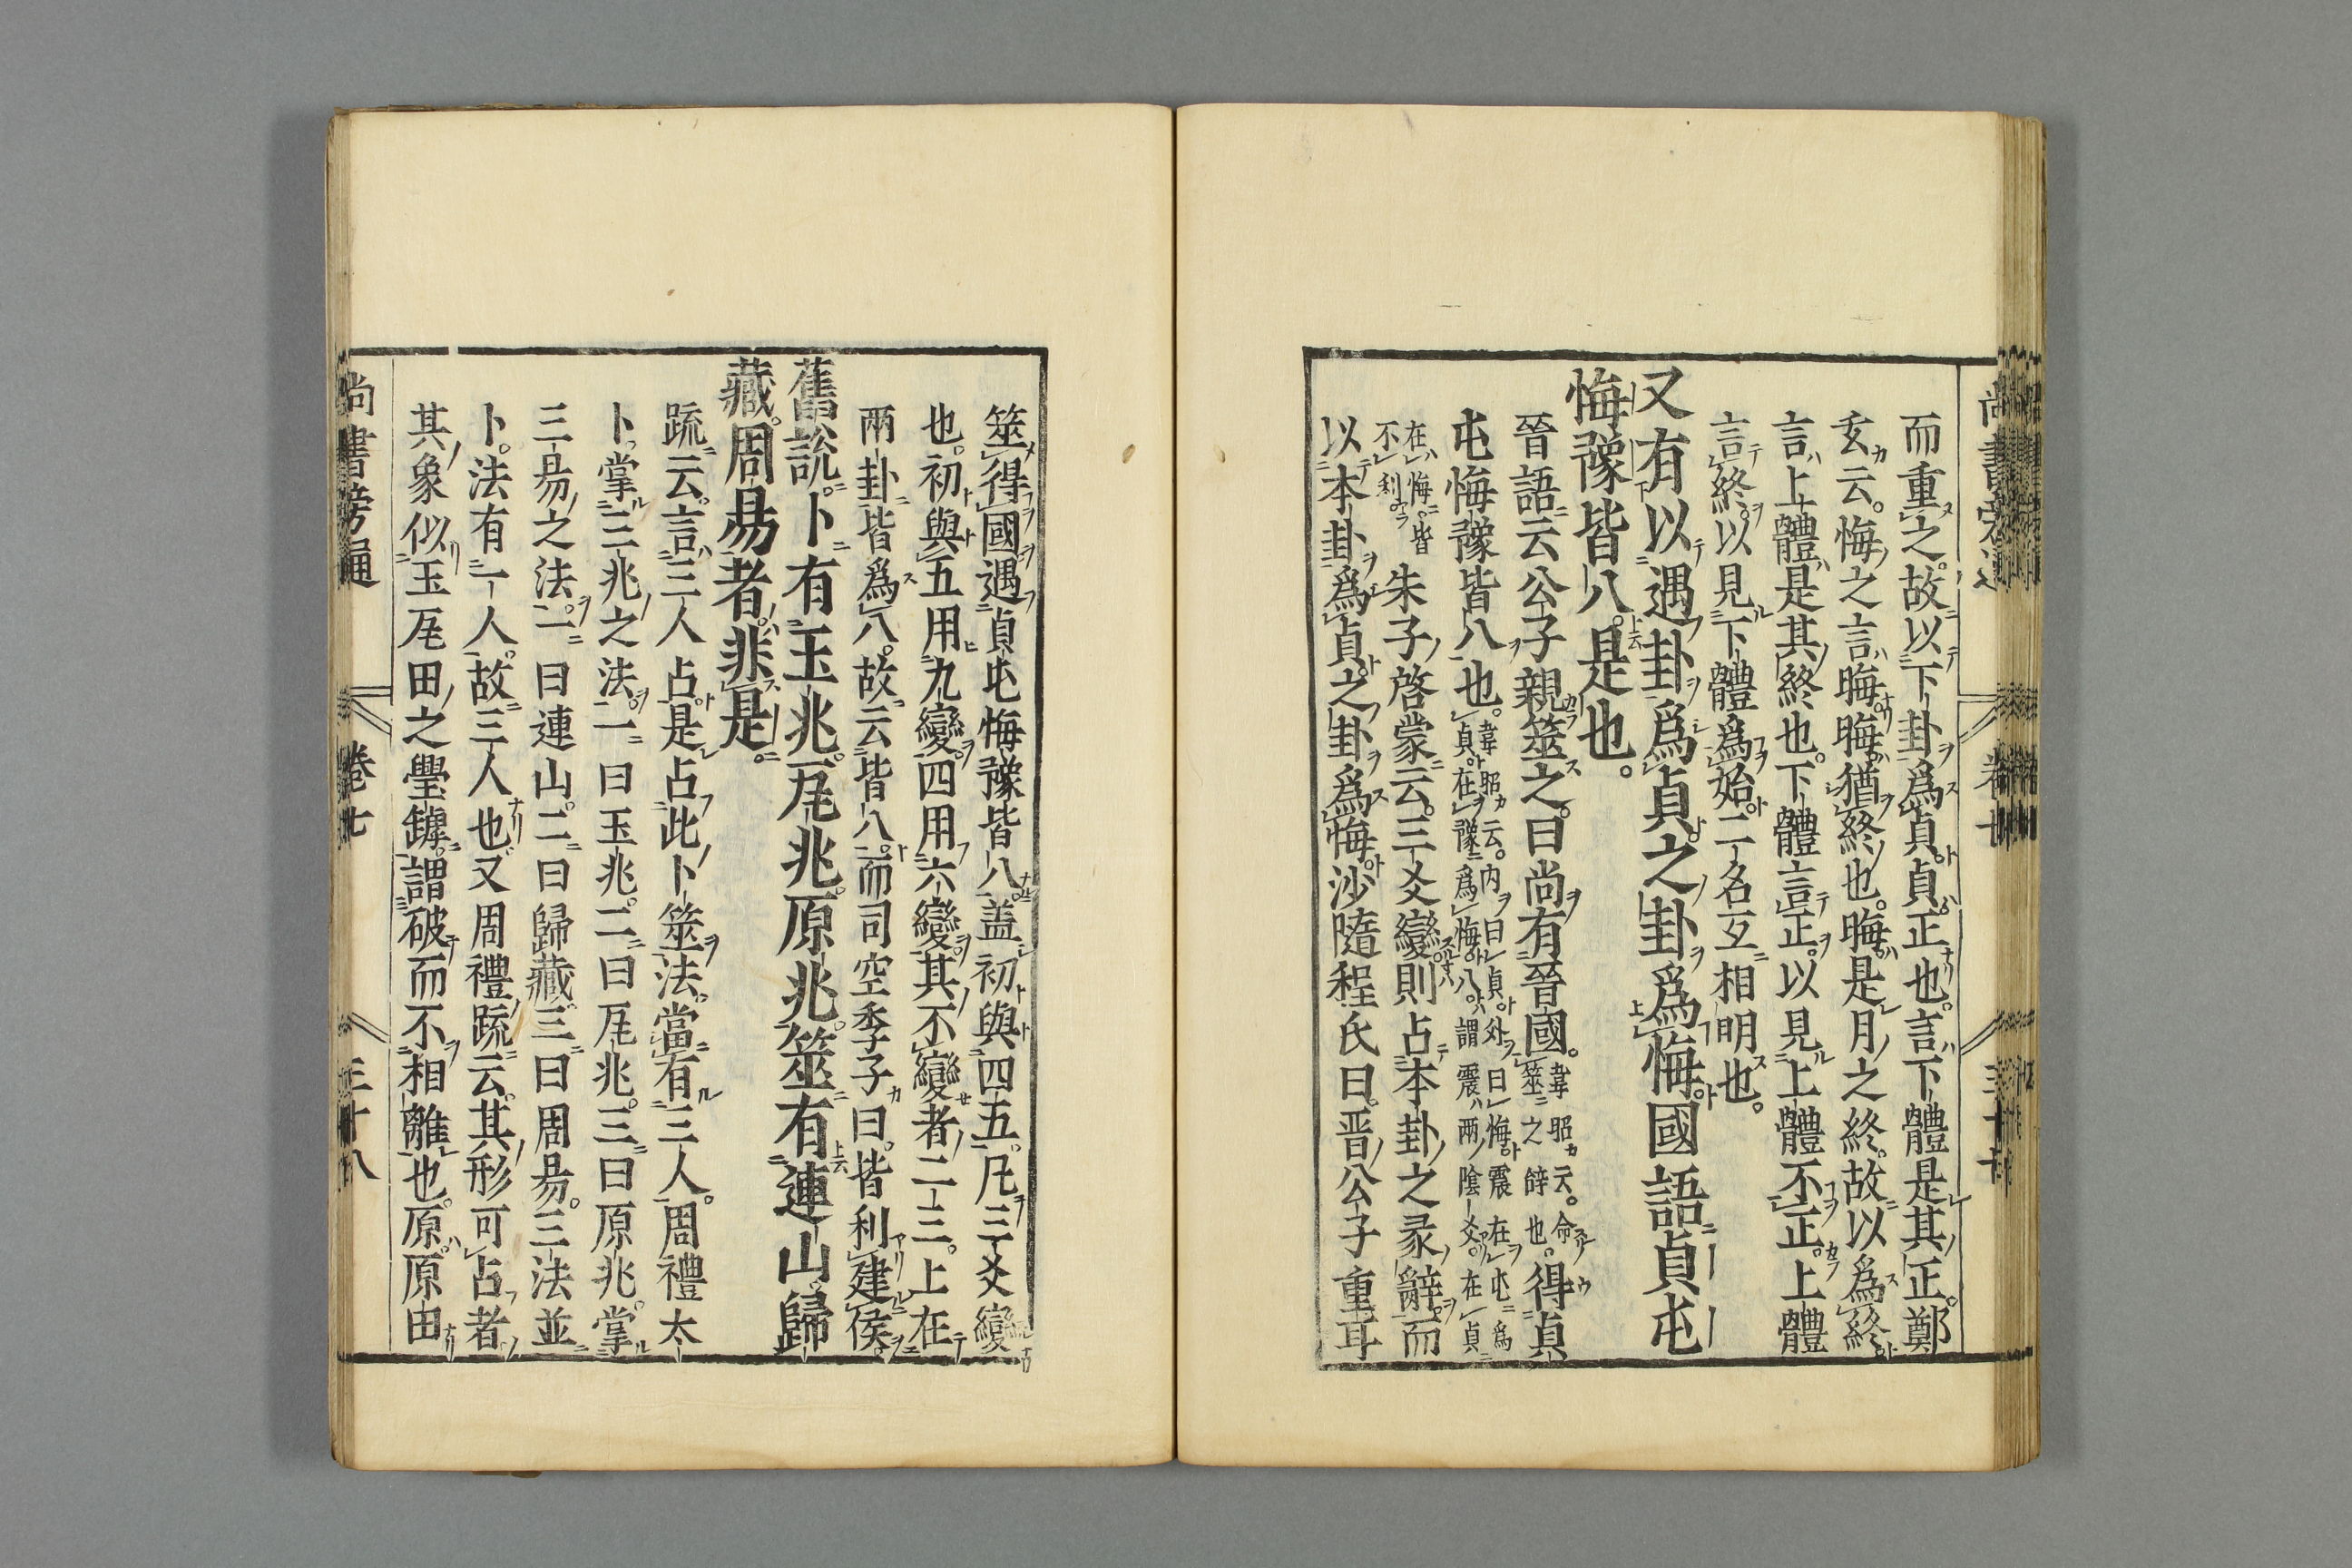 而重之。故以下卦爲貞。貞。正也。言下體是其正。鄭
玄云。悔之言晦。晦。猶終也。晦。是月之終。故以爲終。
言上體是其終也。下體言正。以見上體不正。上體
言終。以見下體爲始。二名互相明也。
又有以遇卦爲貞。之卦爲悔。國語貞屯
悔豫皆八。是也。
晉語云公子親筮之。曰尚有晉國。韋昭云。命筮之辭也。得貞
屯悔豫皆八也。韋昭云。内曰貞。外曰悔。震在屯爲貞。在豫爲悔。八。謂震兩陰爻。在貞
在悔。皆不利。朱子啓蒙云。三爻變。則占本卦之彖辭。而
以本卦爲貞。之卦爲悔。沙隨程氏曰。晋公子重耳
筮得國遇貞屯悔豫皆八。盖初與四五。凡三爻變
也。初與五用九變。四用六變。其不變者二三。上在
兩卦皆爲八。故云皆八。而司空季子曰。皆利建侯。
舊說。卜有玉兆。瓦兆。原兆。筮有連山。歸
藏。周易者。非是。
疏云。言三人占。是占此卜筮法。當有三人。周禮太
卜。掌三兆之法。一曰玉兆。二曰瓦兆。三曰原兆。掌
三易之法。一曰連山。二曰歸藏。三曰周易。三法並
卜。法有一人。故三人也。又周禮疏云。其形可占者。
其象似玉瓦田之璺罅。謂破而不相離也。原。原田
尚書旁通 卷七 三十八